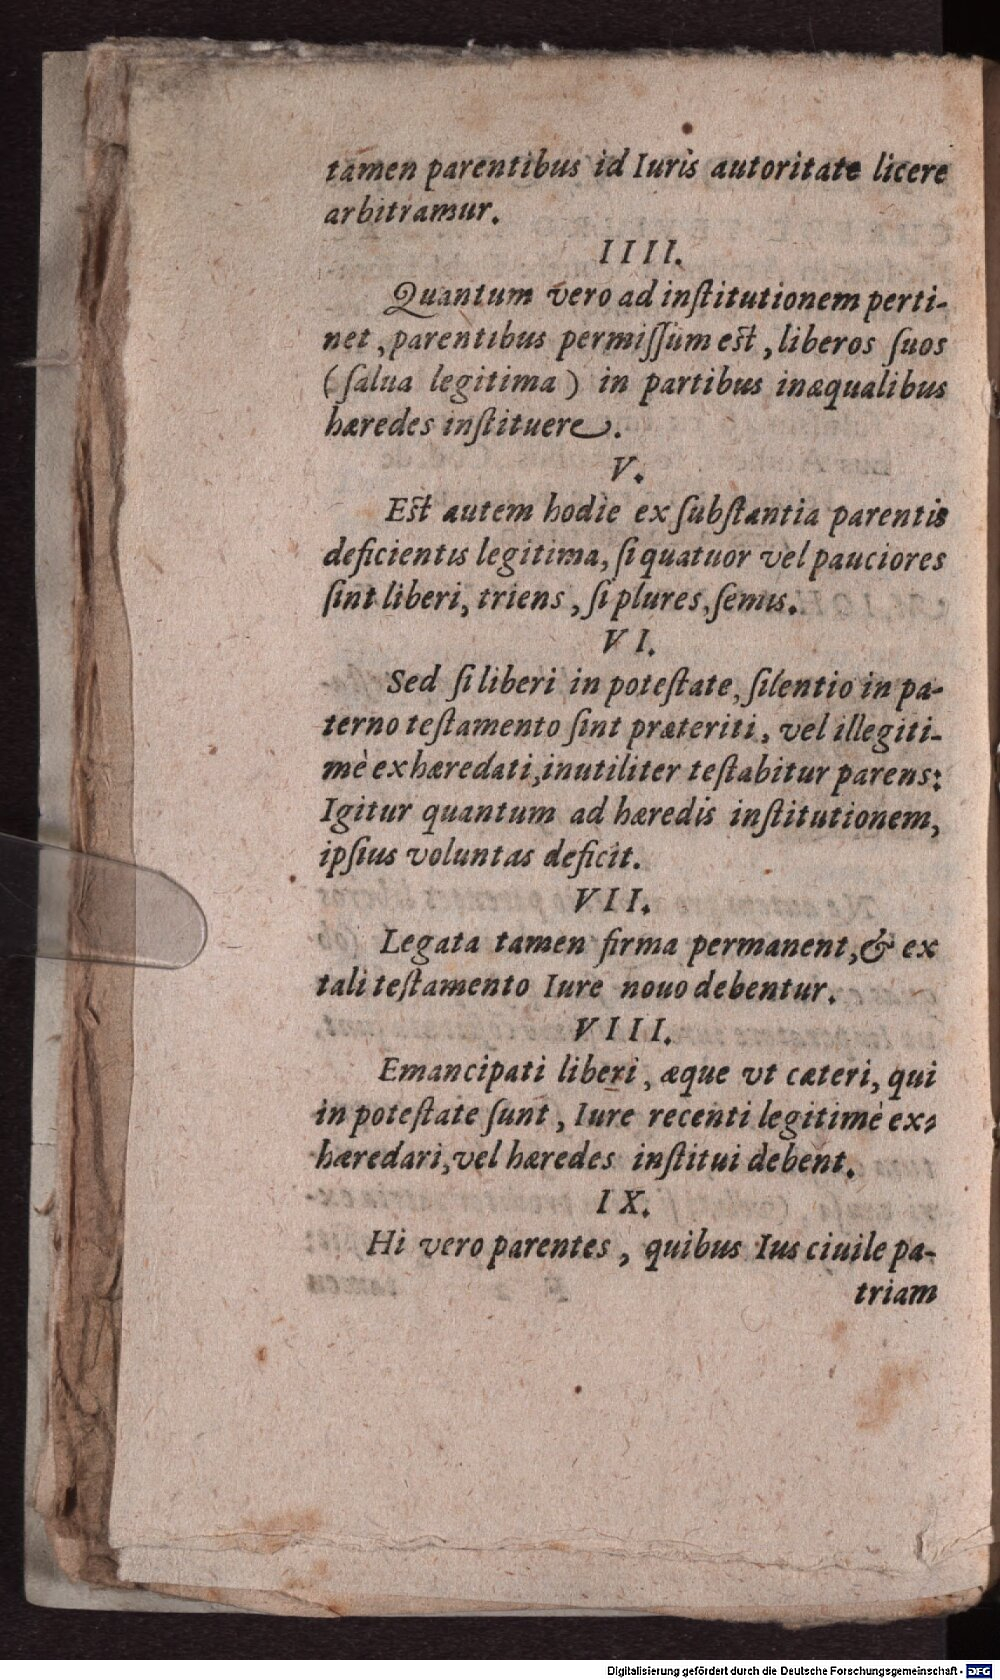 tamen parentibus id Iuris autoritate licere
arbitramur.
IIII.
Quantum vero ad inſtitutionem perti-
net, parentibus permiſſum est, liberos ſuos
(ſalua legitima) in partibus inæqualibus
hæredes inſtituere.
V.
Est autem hodie ex ſubſtantia parentis
deficientis legitima, ſi quatuor vel pauciores
ſint liberi, triens, ſi plures, ſemis.
VI.
Sed ſi liberi in poteſtate, ſilentio in pa-
terno teſtamento ſint præteriti, vel illegiti-
mè exhæredati, inutiliter teſtabitur parens:
Igitur quantum ad hæredis inſtitutionem,
ipſius voluntas deficit.
VII.
Legata tamen firma permanent, & ex
tali teſtamento Iure nouo debentur.
VIII.
Emancipati liberi, æque vt cæteri, qui
in poteſtate ſunt, Iure recenti legitimè ex-
hæredari, vel hæredes inſtitui debent.
IX.
Hi vero parentes, quibus Ius ciuile pa-
triam
Digitalisierung gefördert durch die Deutsche Forschungsgemeinschaft - DFG